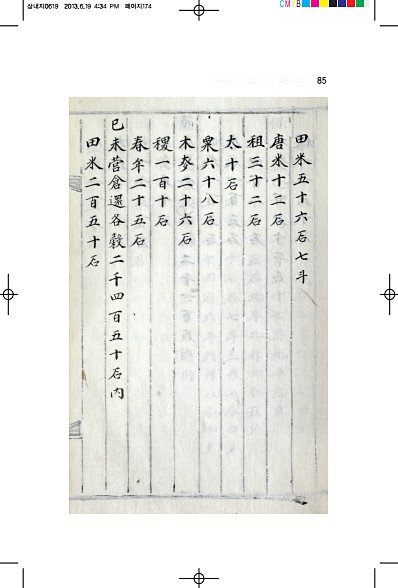 삼내지0619 2013.6.19 4:34 PM 페이지174
CMYB
85
田米五十六石七斗
唐米十二石
租三十二石
太十石
粟六十八石
木麥二十六石
稷一百十石
春牟二十五石
己未營倉還各穀二千四百五十石內
田米二百五十石